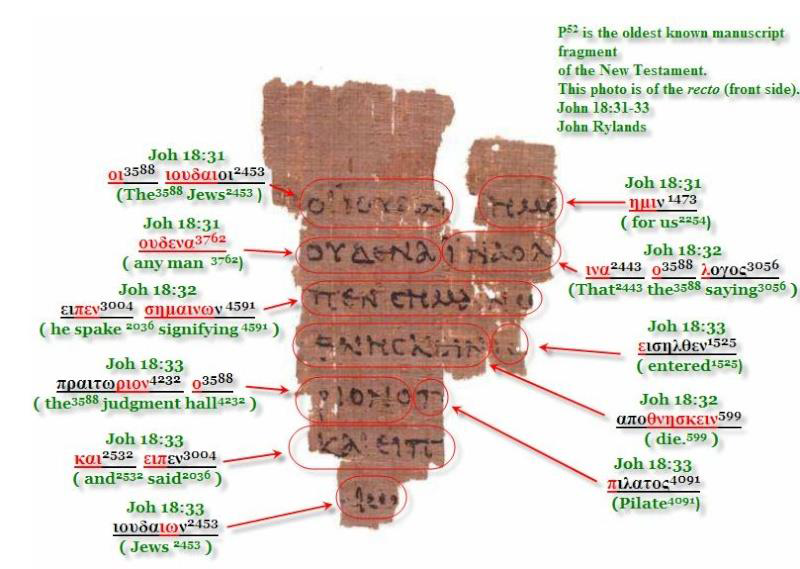 P⁵² is the oldest known manuscript
fragment
of the New Testament.
This photo is of the recto (front side).
John 18:31-33
John Rylands
Joh 18:31
οι³⁵⁸⁸ ιουδαιοι²⁴⁵³
(The³⁵⁸⁸ Jews²⁴⁵³ )
Joh 18:31
ουδενα³⁷⁶²
( any man ³⁷⁶²)
Joh 18:32
ειπεν³⁰⁰⁴ σημαινων ⁴⁵⁹¹
( he spake ²⁰³⁶ signifying ⁴⁵⁹¹ )
Joh 18:33
πραιτωριον⁴²³² ο³⁵⁸⁸
( the³⁵⁸⁸ judgment hall⁴²³² )
Joh 18:33
και²⁵³² ειπεν³⁰⁰⁴
( and²⁵³² said²⁰³⁶ )
Joh 18:33
ιουδαιων²⁴⁵³
( Jews ²⁴⁵³ )
ΟΙΙΟΥΔΑΙ ΗΜΙ
ΟΥΔΕΝΑΙΝΑΟΛ
ΠΕΝCΗΜΑΙΝΩ
ΘΝΗCΚΕΙΝ
ΡΙΟΝΟΠ
ΚΑΙΕΙΠ
Joh 18:31
ημιν ¹⁴⁷³
( for us²²⁵⁴)
Joh 18:32
ινα²⁴⁴³ ο³⁵⁸⁸ λογος³⁰⁵⁶
(That²⁴⁴³ the³⁵⁸⁸ saying³⁰⁵⁶ )
Joh 18:33
εισηλθεν¹⁵²⁵
( entered¹⁵²⁵)
Joh 18:32
αποθνησκειν⁵⁹⁹
( die.⁵⁹⁹ )
Joh 18:33
πιλατος⁴⁰⁹¹
(Pilate⁴⁰⁹¹)